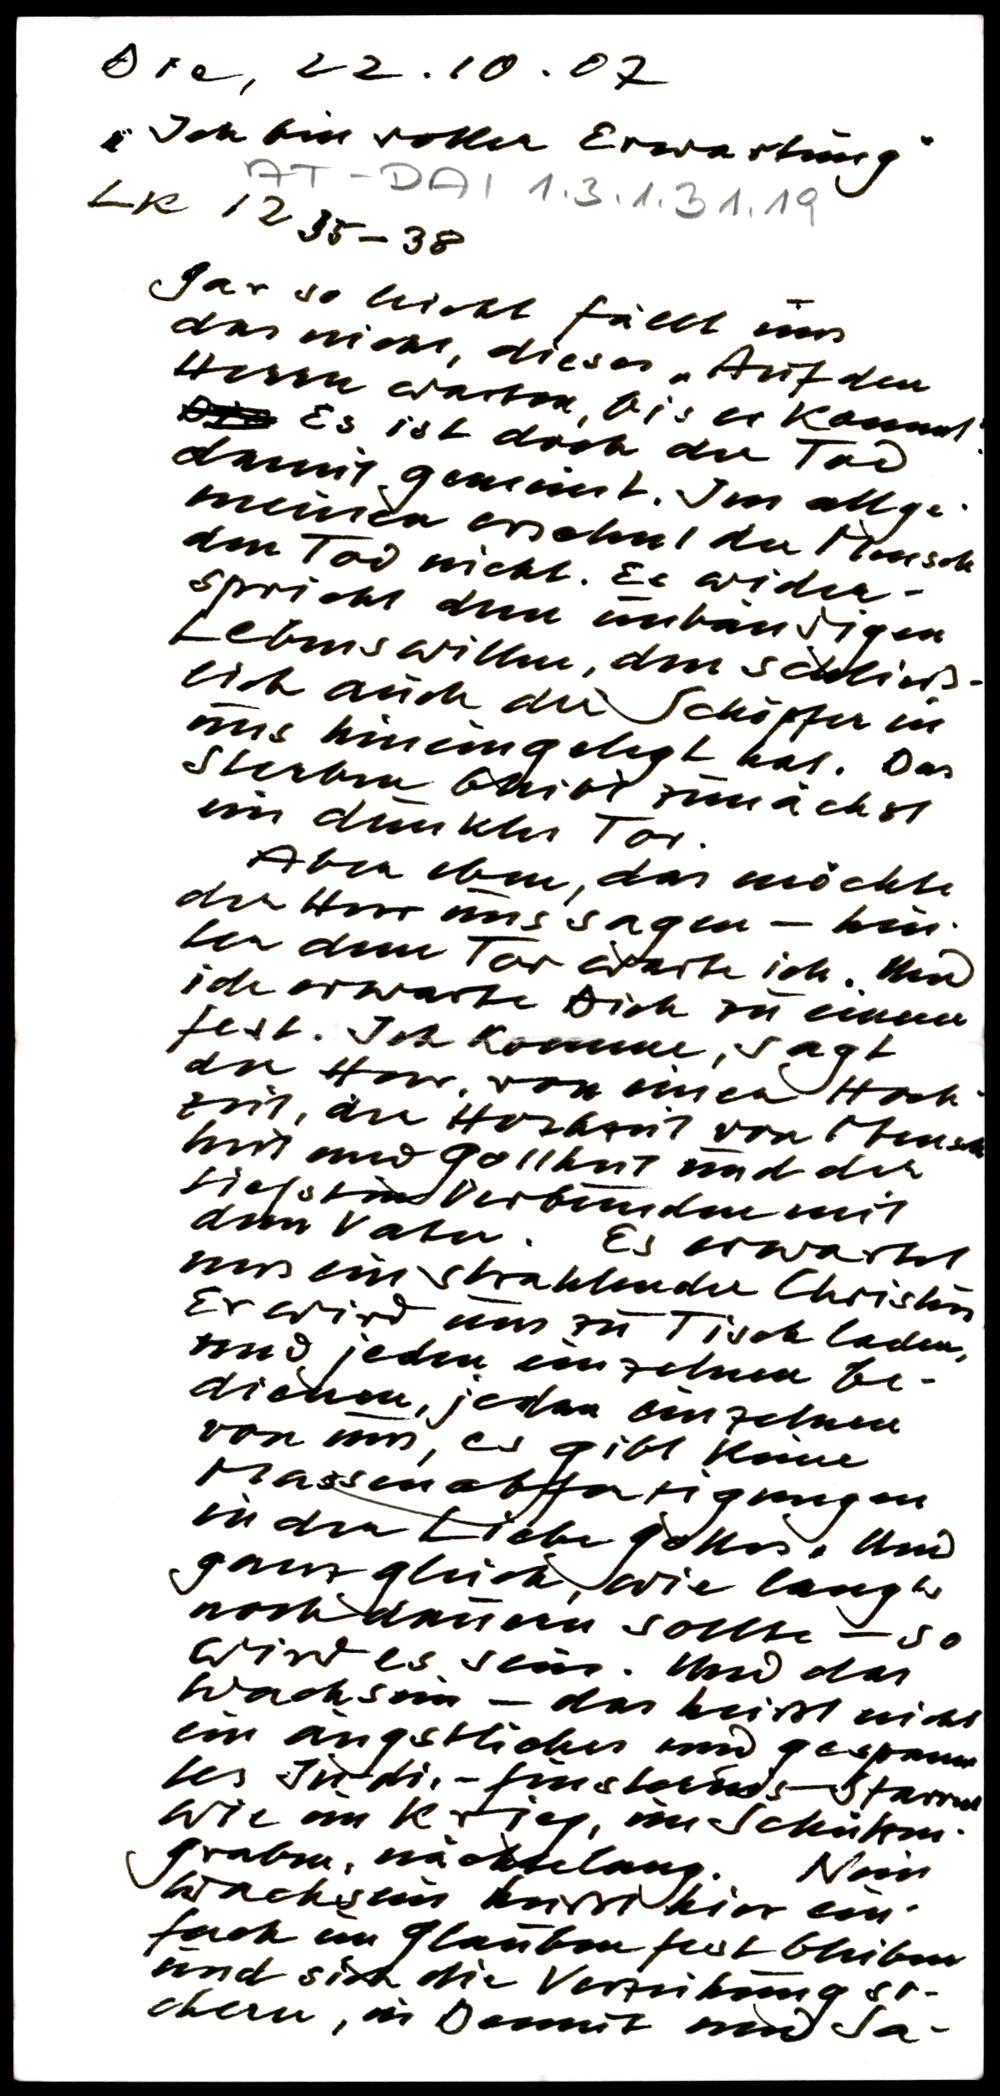 Die, 22.10.07
"Ich bin voller Erwartung"
AT-DAI 1.3.1.31.19
LK 12 35-38
Gar so leicht fällt uns
das nicht, dieses "Auf den
Herrn warten, bis er kommt"
Die Es ist doch der Tod
damit gemeint. Im allge-
meinen ersehnt der Mensch
den Tod nicht. Es wider-
spricht dem unbändigen
Lebenswillen, den schließ-
lich auch der Schöpfer in
uns hineingelegt hat. Das
Sterben bleibt zunächst
ein dunkles Tor.
Aber eben, das möchte
der Herr uns sagen - hin-
ter dem Tor warte ich. Und
ich erwarte Dich zu einem
Fest. Ich komme, sagt
der Herr, von einer Hoch-
zeit, der Hochzeit von Mensch
heit und Gottheit und der
tiefsten Verbunden mit
dem Vater. Es erwartet
uns ein strahlender Christus
Er wird uns zu Tisch laden,
und jeden einzelnen be-
dienen, jeden einzelnen
von uns, es gibt keine
Massenabfertigungen
in der Liebe Gottes. Und
ganz gleich, wie lang es
noch dauern sollte - so
wird es sein. Und das
Wachsein - das heisst nicht
ein ängstliches und gespann
tes In-die-Finsternis-Starren
wie im Krieg, im Schützen-
graben, nächtelang. Nein
Wachsein heisst hier ein-
fach im Glauben fest bleiben
und sich die Verzeihung si-
chern, in Demut und Ja-